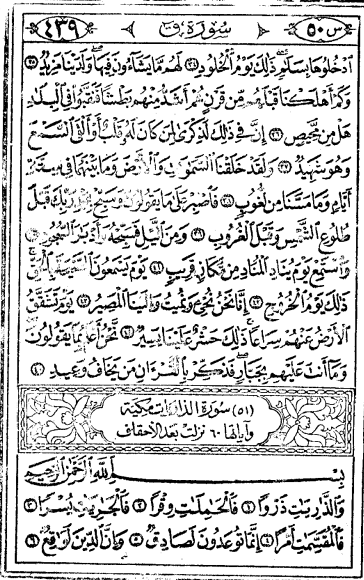 ٤٣٩ سورة ق س ٥٠
ادخلوها بسلام ذلك يوم الخلود ٣٤ لهم ما يشاءون فيها ولدينا مزيد ٣٥
وكم أهلكنا قبلهم من قرن هم أشد منهم بطشا فنقبوا في البلاد
هل من محيص ٣٦ إن في ذلك لذكرى لمن كان له قلب أو ألقى السمع
وهو شهيد ٣٧ ولقد خلقنا السموت والأرض وما بينهما في ستة
أيام وما مسنا من لغوب ٣٨ فاصبر على ما يقولون وسبح بحمد ربك قبل
طلوع الشمس وقبل الغروب ٣٩ ومن اليل فسبحه وأدبر السجود ٤٠
واستمع يوم يناد المناد من مكان قريب ٤١ يوم يسمعون الصيحة بالحق
ذلك يوم الخروج ٤٢ إنا نحن نحي ونميت وإلينا المصير ٤٣ يوم تشقق
الأرض عنهم سراعا ذلك حشر علينا يسير ٤٤ نحن أعلم بما يقولون
وما أنت عليهم بجبار فذكر بالقرءان من يخاف وعيد ٤٥
(٥١) سورة الذاريات مكية
وآياتها ٦٠ نزلت بعد الأحقاف
بسم الله الرحمن الرحيم
والذاريات ذروا ١ فالحملت وقرا ٢ فالجريت يسرا ٣
فالمقسمت أمرا ٤ إنما توعدون لصادق ٥ وإن الدين لواقع ٦